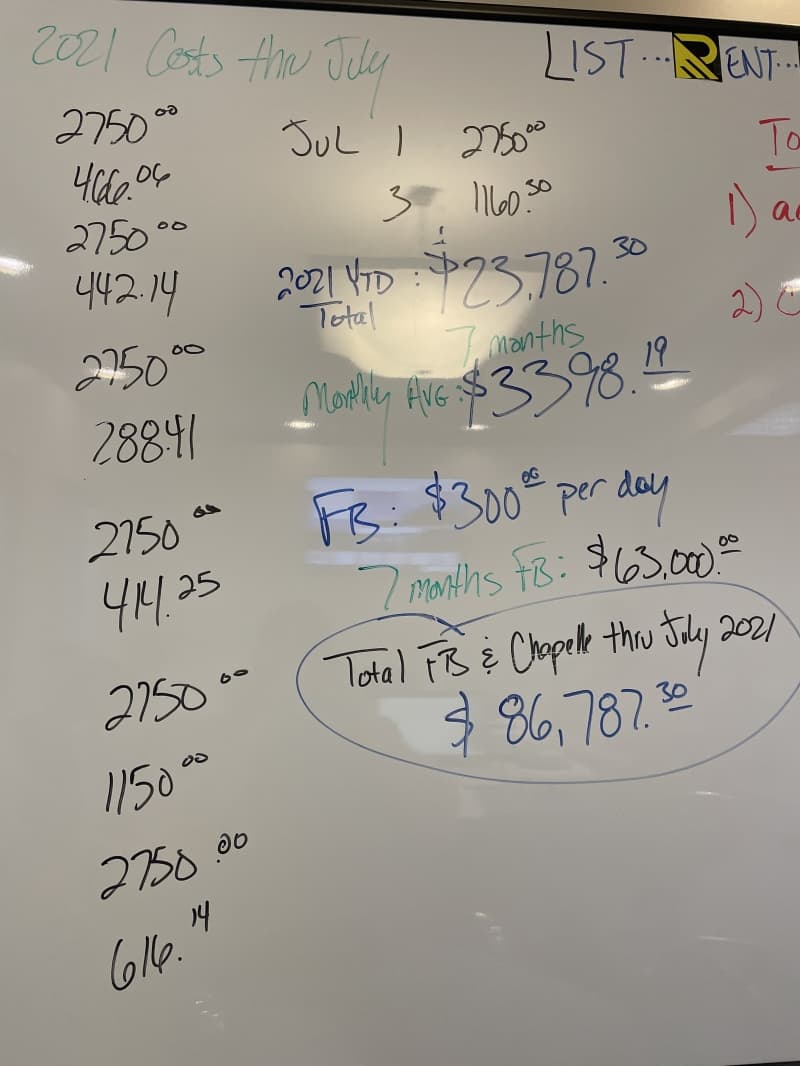 2021 Costs thru July
LIST... RENT...
2750.00
466.06
2750.00
442.14
2750.00
288.41
2750.00
414.25
2750.00
1150.00
2750.00
616.14
JUL 1 2750.00
3 1160.30
2021 YTD : $23,787.30
Total
7 months
Monthly AVG: $3398.19
FB: $300.00 per day
7 months FB: $63,000.00
Total FB & Chapelle thru July 2021
$86,787.30
To
1) a
2)